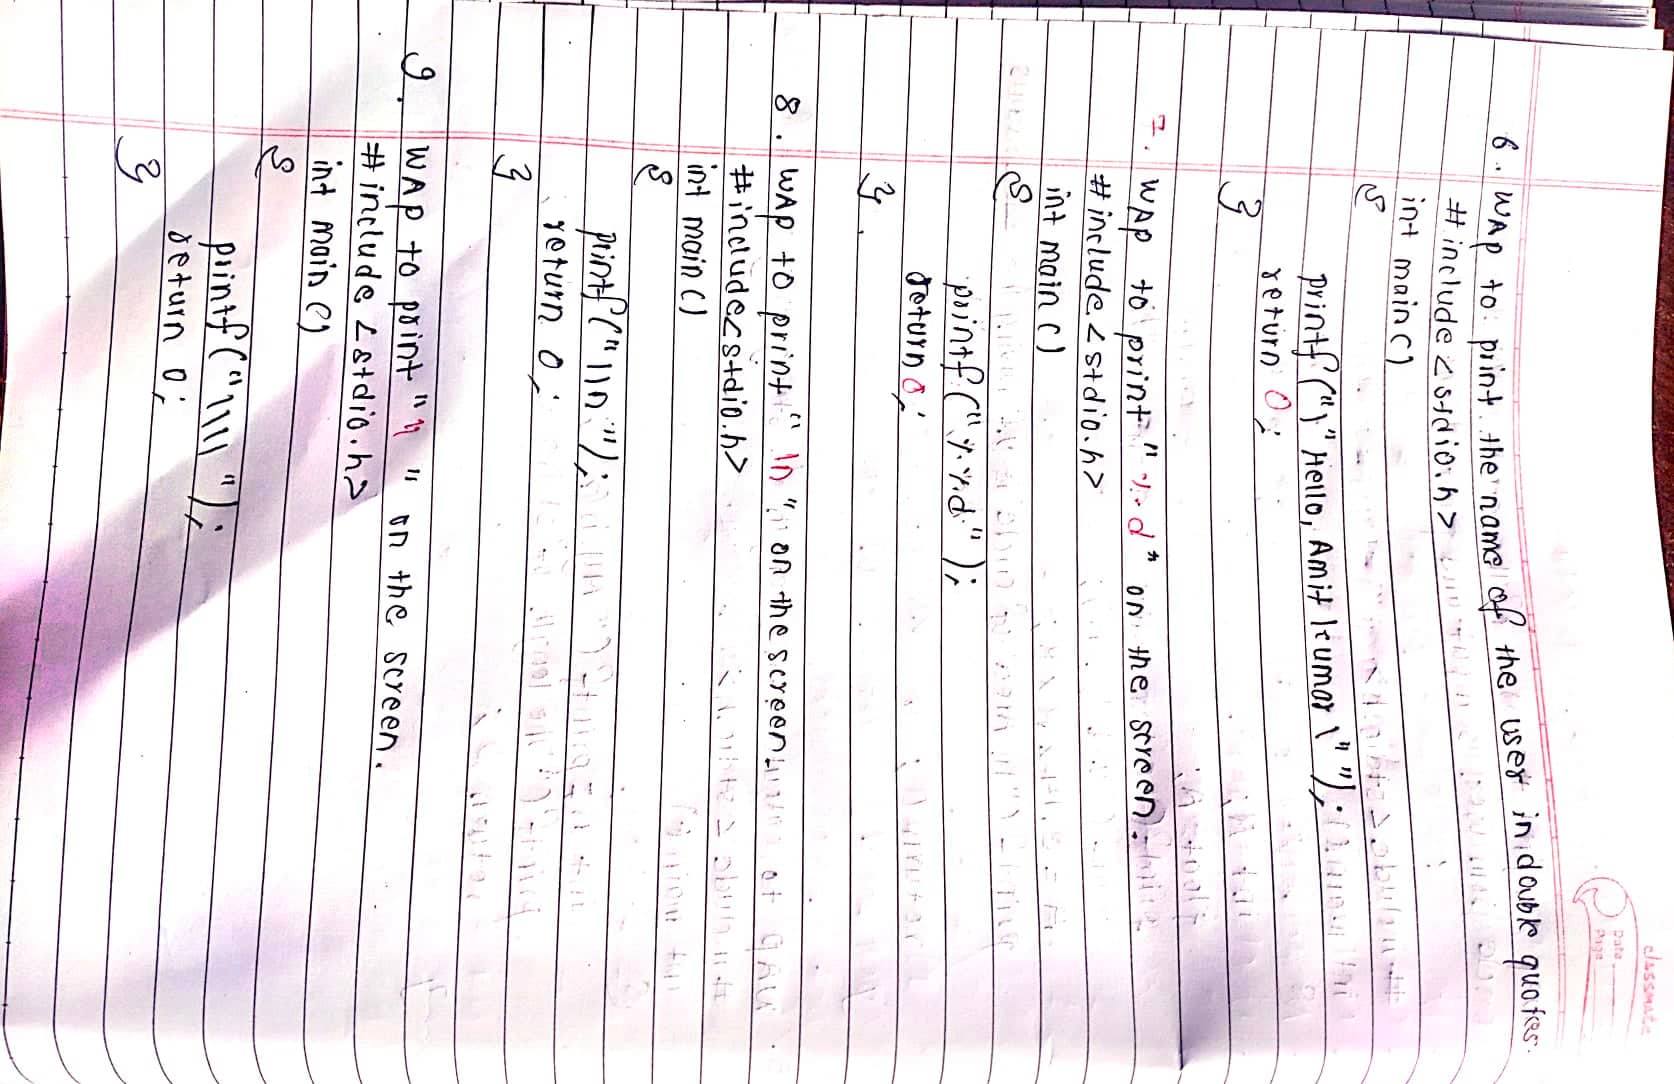 classmate
Date
Page
6. WAP to print the name of the user in double quotes.
#include<stdio.h>
int main()
{
printf("\"Hello, Amit Kumar\"");
return 0;
}
7. WAP to print "%d" on the screen.
#include<stdio.h>
int main()
{
printf("%%d");
return 0;
}
8. WAP to print "\n" on the screen.
#include<stdio.h>
int main()
{
printf("\\n");
return 0;
}
9. WAP to print "\\" on the screen.
#include<stdio.h>
int main()
{
printf("\\\\");
return 0;
}